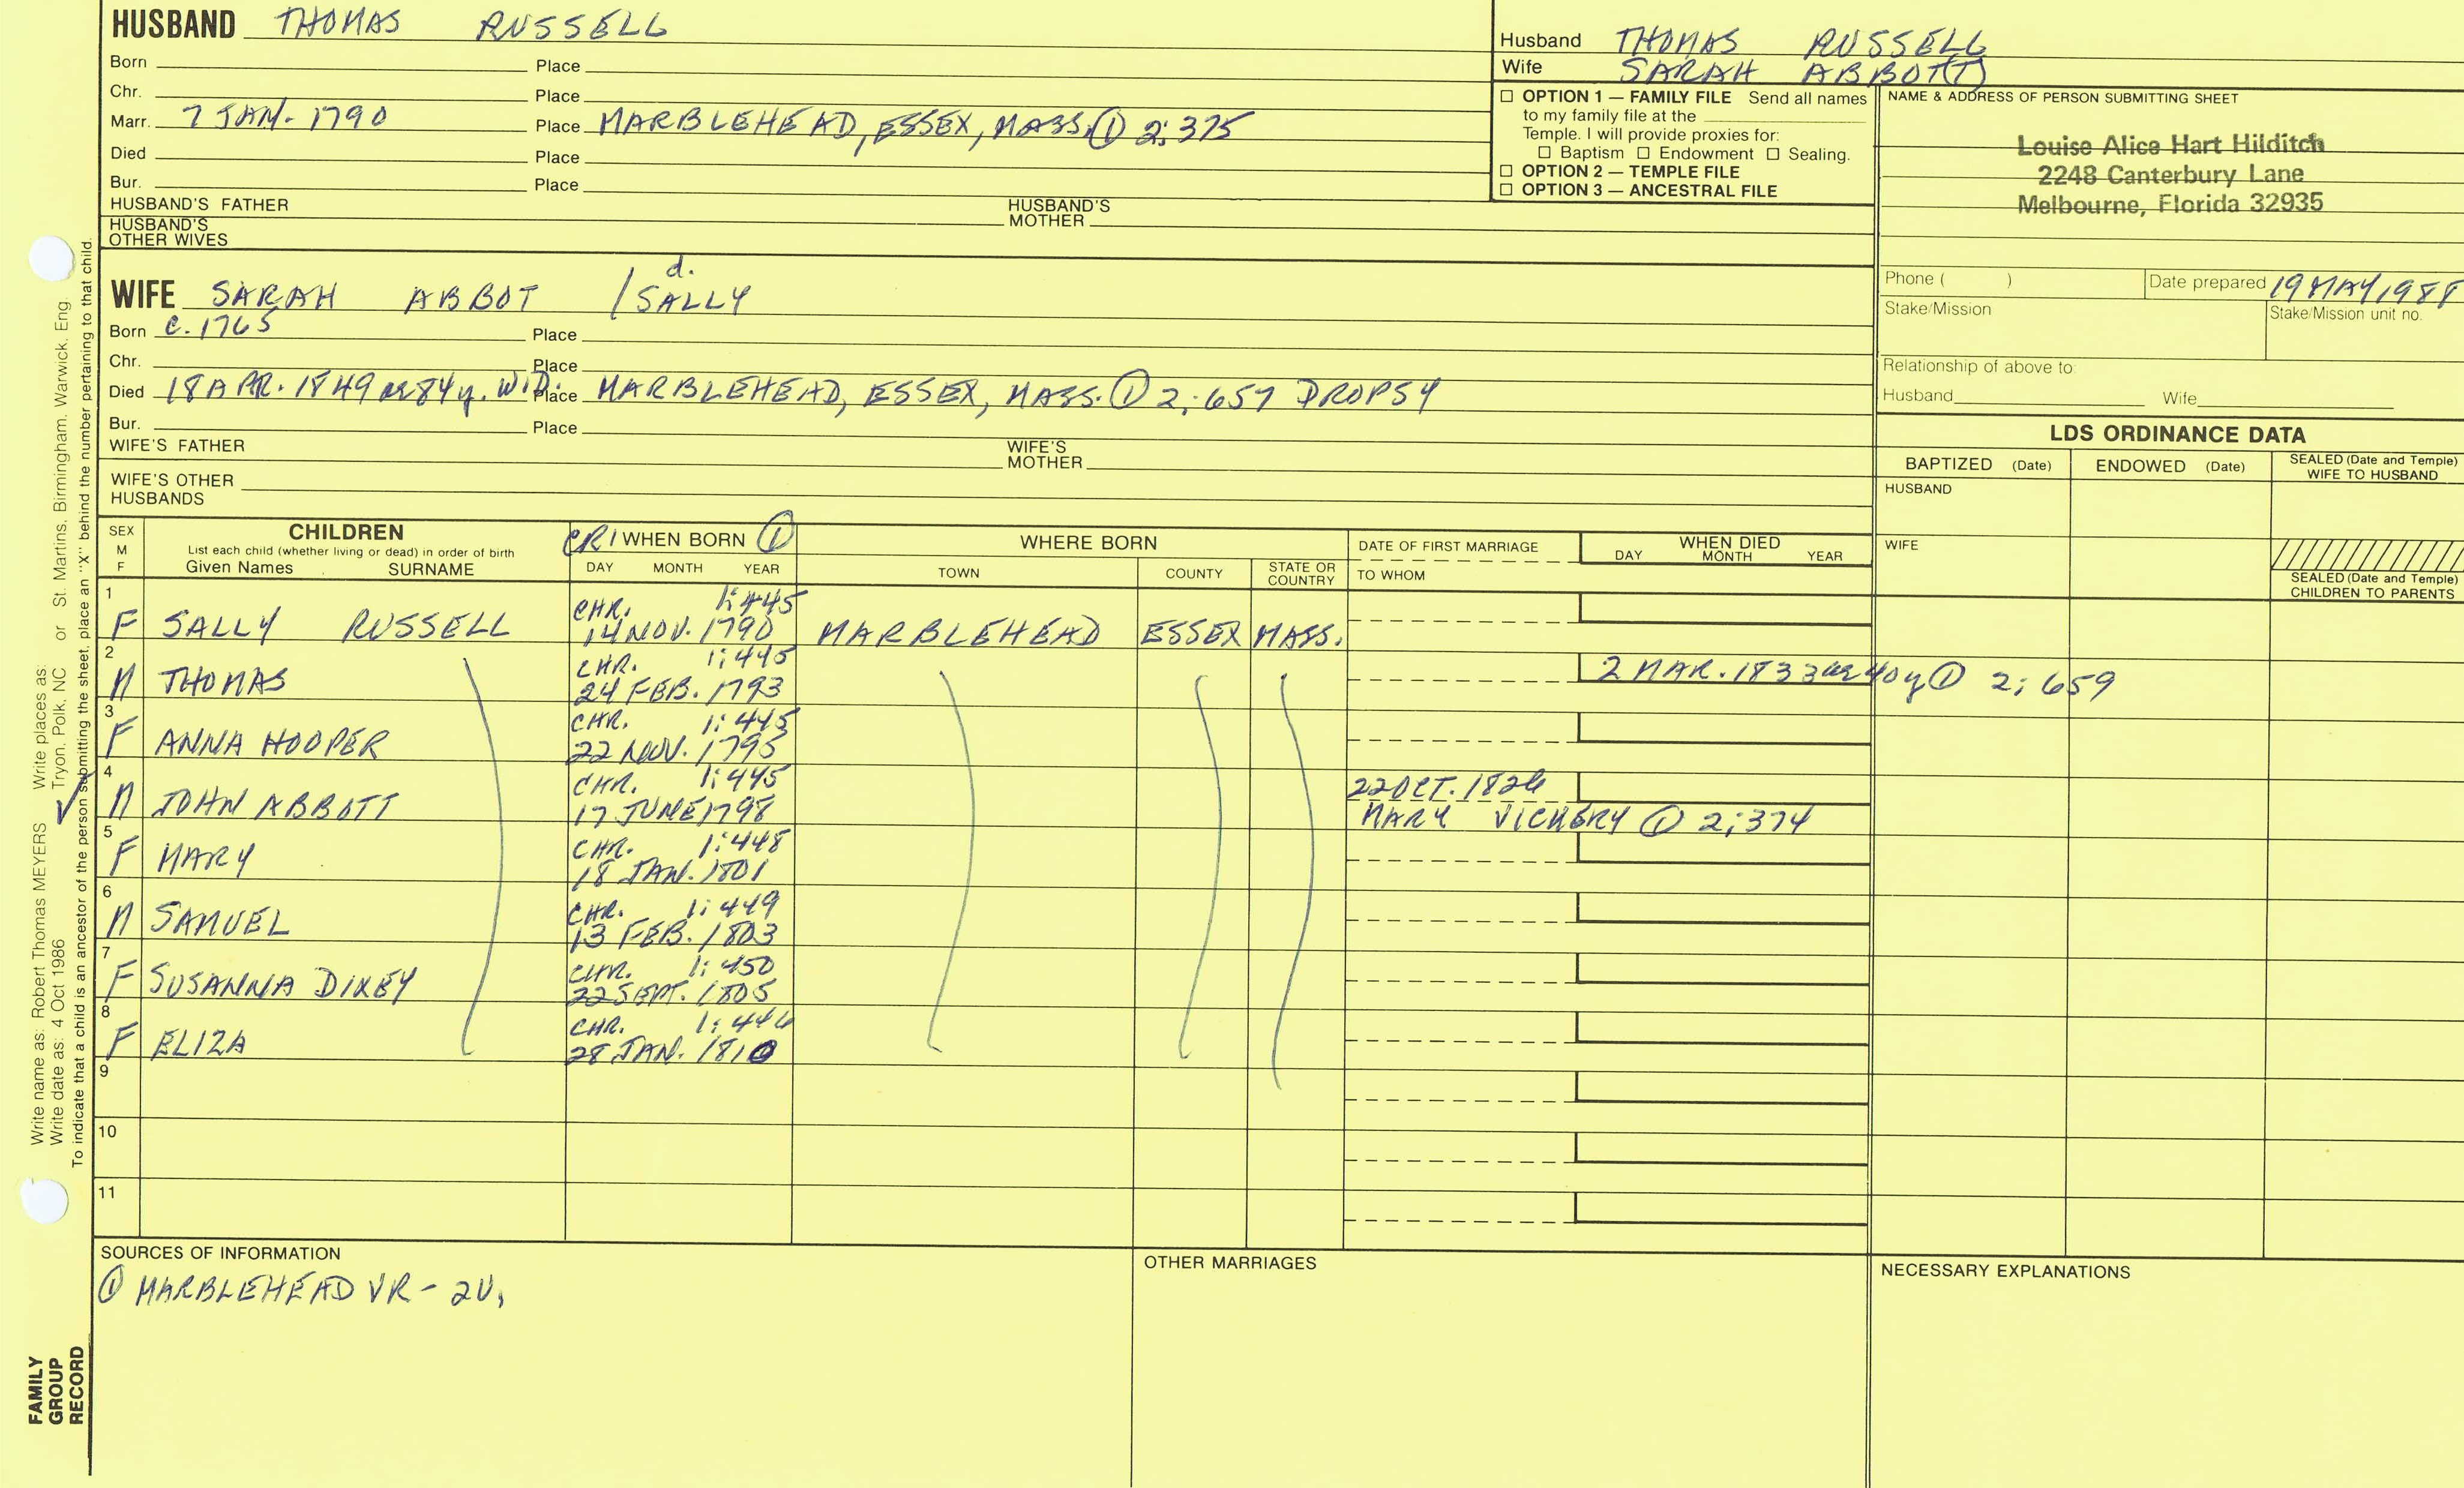 HUSBAND THOMAS RUSSELL
Born Place
Chr. Place
Marr. 7 JAN. 1790 Place MARBLEHEAD, ESSEX, MASS. ① 2:375
Died Place
Bur. Place
HUSBAND'S FATHER HUSBAND'S MOTHER
HUSBAND'S OTHER WIVES
Husband THOMAS RUSSELL
Wife SARAH ABBOT(T)
☐ OPTION 1 — FAMILY FILE Send all names
to my family file at the
Temple. I will provide proxies for:
☐ Baptism ☐ Endowment ☐ Sealing.
☐ OPTION 2 — TEMPLE FILE
☐ OPTION 3 — ANCESTRAL FILE
NAME & ADDRESS OF PERSON SUBMITTING SHEET
Louise Alice Hart Hilditch
2248 Canterbury Lane
Melbourne, Florida 32935
d.
WIFE SARAH ABBOT /SALLY
Born c. 1765 Place
Chr. Place
Died 18 APR. 1849 æ 84 y. WID. Place MARBLEHEAD, ESSEX, MASS. ① 2:657 DROPSY
Bur. Place
WIFE'S FATHER WIFE'S MOTHER
WIFE'S OTHER HUSBANDS
Phone ( ) Date prepared 19 MAY 1988
Stake/Mission Stake/Mission unit no.
Relationship of above to:
Husband Wife
LDS ORDINANCE DATA
BAPTIZED (Date) ENDOWED (Date) SEALED (Date and Temple) WIFE TO HUSBAND
HUSBAND
WIFE
SEALED (Date and Temple) CHILDREN TO PARENTS
SEX M F
CHILDREN
List each child (whether living or dead) in order of birth
Given Names SURNAME
CR1 WHEN BORN ①
DAY MONTH YEAR
WHERE BORN
TOWN COUNTY STATE OR COUNTRY
DATE OF FIRST MARRIAGE
TO WHOM
WHEN DIED
DAY MONTH YEAR
1 CHR. 1:445
F SALLY RUSSELL 14 NOV. 1790 MARBLEHEAD ESSEX MASS.
2 CHR. 1:445
M THOMAS 24 FEB. 1793 2 MAR. 1833 æ 40 y ① 2:659
3 CHR. 1:445
F ANNA HOOPER 22 NOV. 1795
4 CHR. 1:445 22 OCT. 1826
M JOHN ABBOTT 17 JUNE 1798 MARY VICKERY ① 2:374
5 CHR. 1:448
F MARY 18 JAN. 1801
6 CHR. 1:449
M SAMUEL 13 FEB. 1803
7 CHR. 1:450
F SUSANNA DIXEY 22 SEPT. 1805
8 CHR. 1:446
F ELIZA 28 JAN. 1810
9
10
11
SOURCES OF INFORMATION
① MARBLEHEAD VR - 2V,
OTHER MARRIAGES
NECESSARY EXPLANATIONS
Write name as: Robert Thomas MEYERS Write places as:
Write date as: 4 Oct 1986 Tryon, Polk, NC or St. Martins, Birmingham, Warwick, Eng
To indicate that a child is an ancestor of the person submitting the sheet, place an "X" behind the number pertaining to that child.
FAMILY
GROUP
RECORD